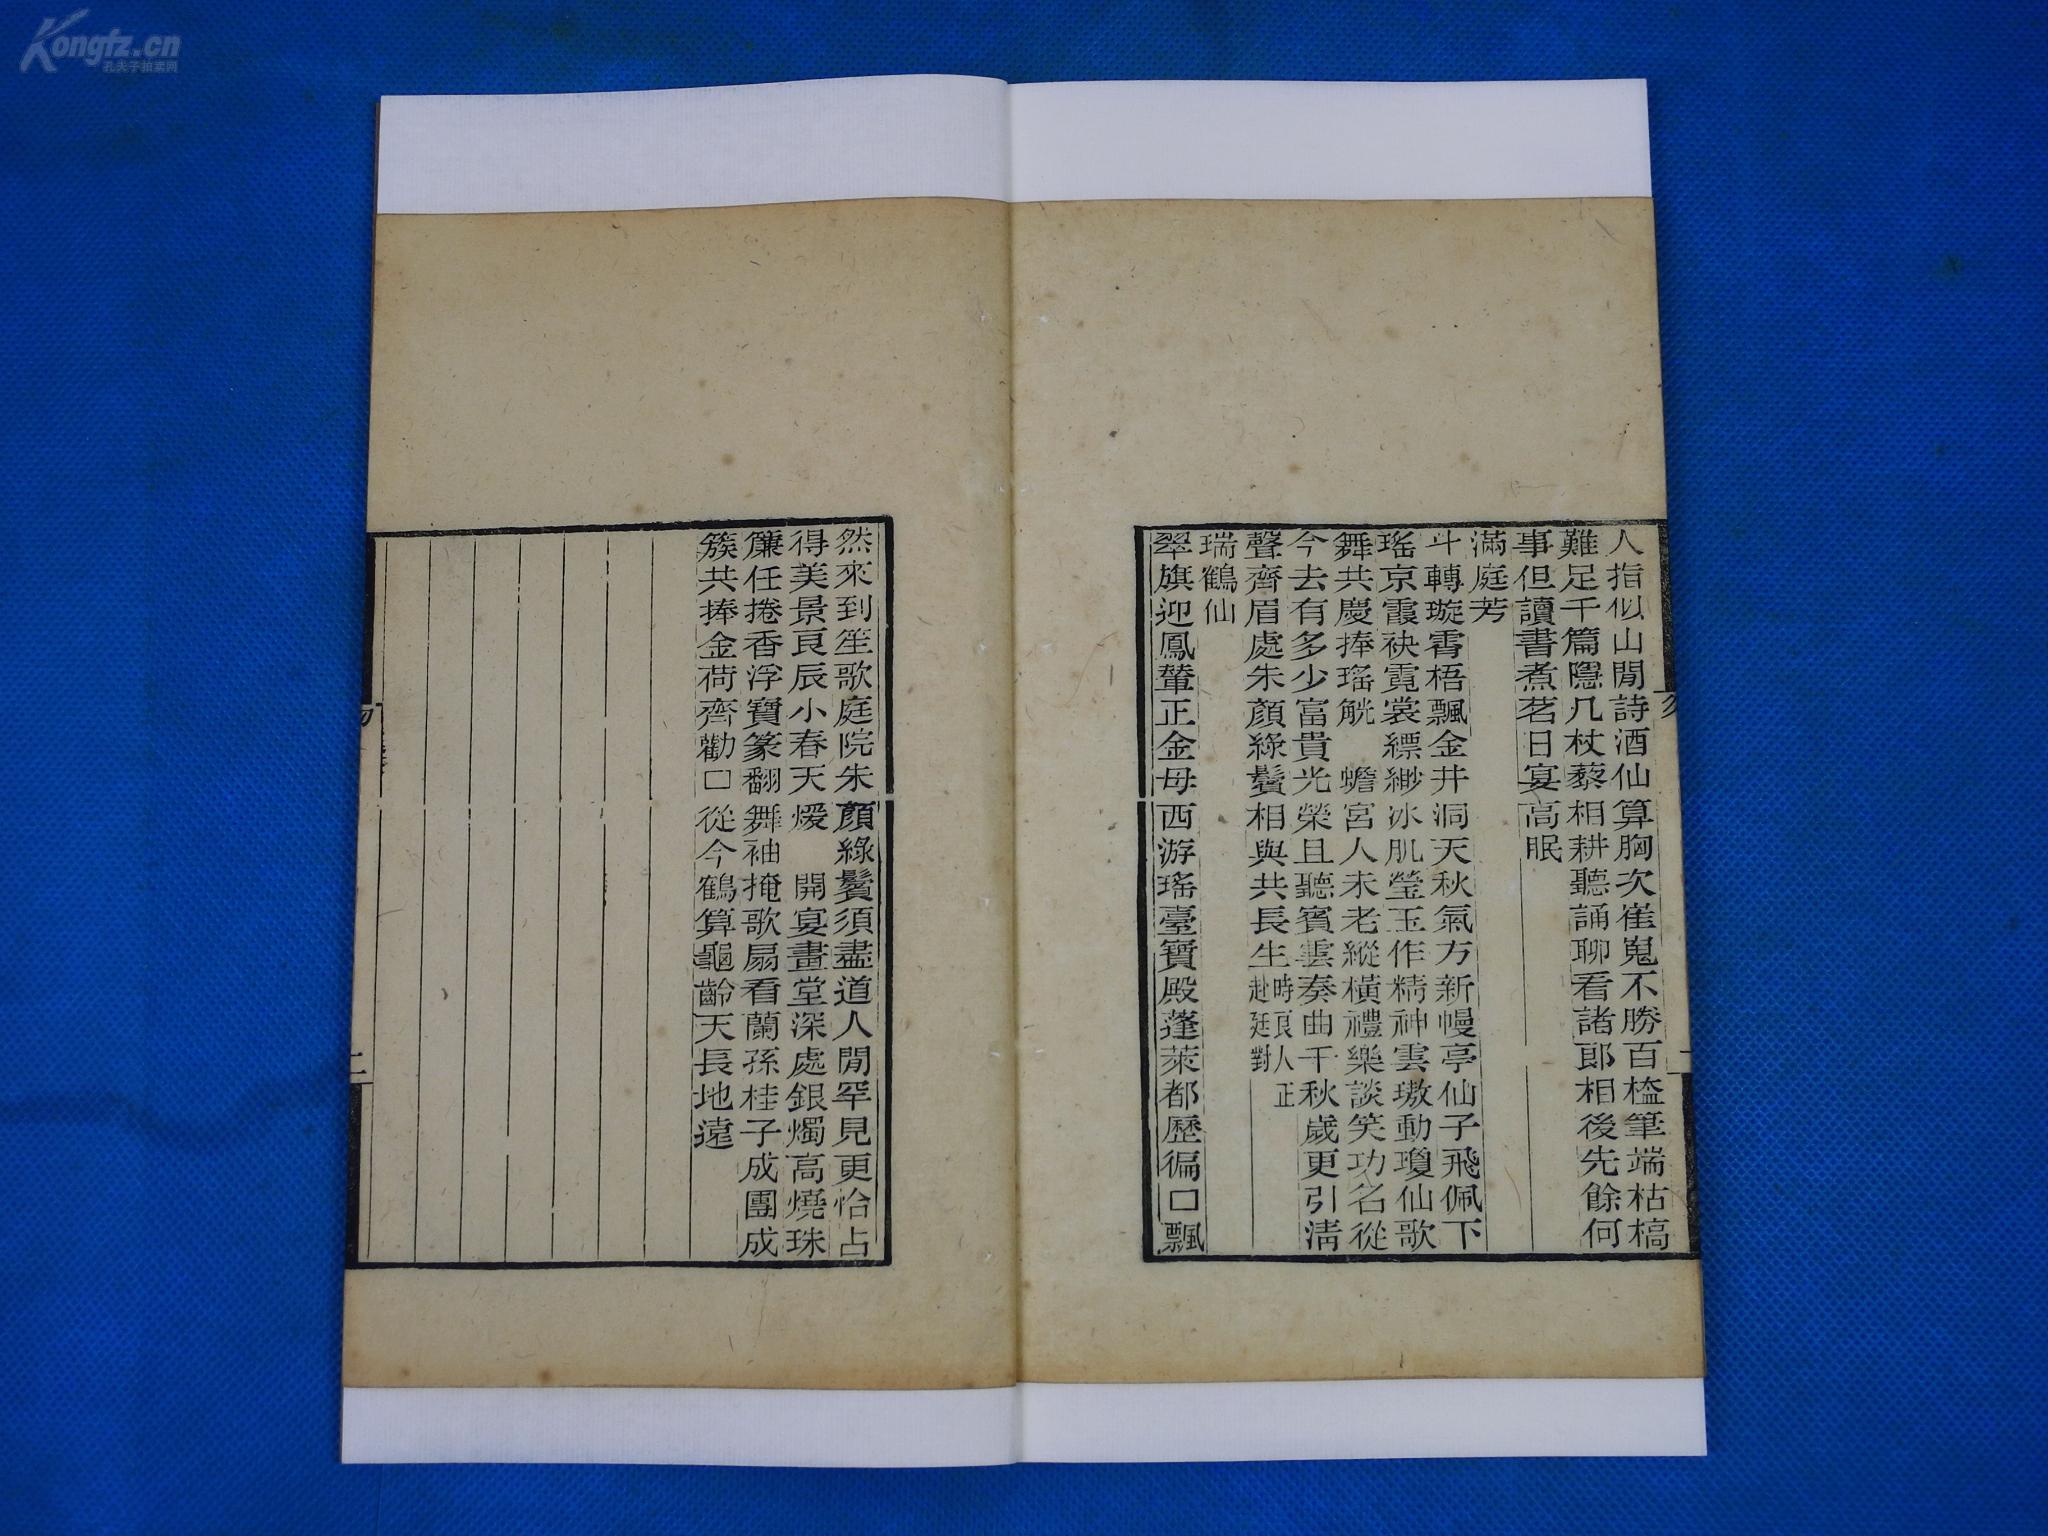 Kongfz.cn
孔夫子拍卖网
人指似山閒詩酒仙算胸次崔嵬不勝百榼筆端枯槁
難足千篇隱几杖藜相耕聽誦聊看諸郎相後先餘何
事但讀書煮茗日宴高眠
滿庭芳
斗轉璇霄梧飄金井洞天秋氣方新幔亭仙子飛佩下
瑤京霞袂霓裳縹緲冰肌瑩玉作精神雲璈動瓊仙歌
舞共慶捧瑤觥 蟾宮人未老縱橫禮樂談笑功名從
今去有多少富貴光榮且聽賓雲奏曲千秋歲更引清
聲齊眉處朱顏綠鬢相與共長生時良人正赴廷對
瑞鶴仙
翠旗迎鳳輦正金母西游瑤臺寶殿蓬萊都歷徧口飄
然來到笙歌庭院朱顏綠鬢須盡道人閒罕見更恰占
得美景良辰小春天煖 開宴畫堂深處銀燭高燒珠
簾任捲香浮寶篆翻舞袖掩歌扇看蘭孫桂子成團成
簇共捧金荷齊勸口從今鶴算龜齡天長地遠